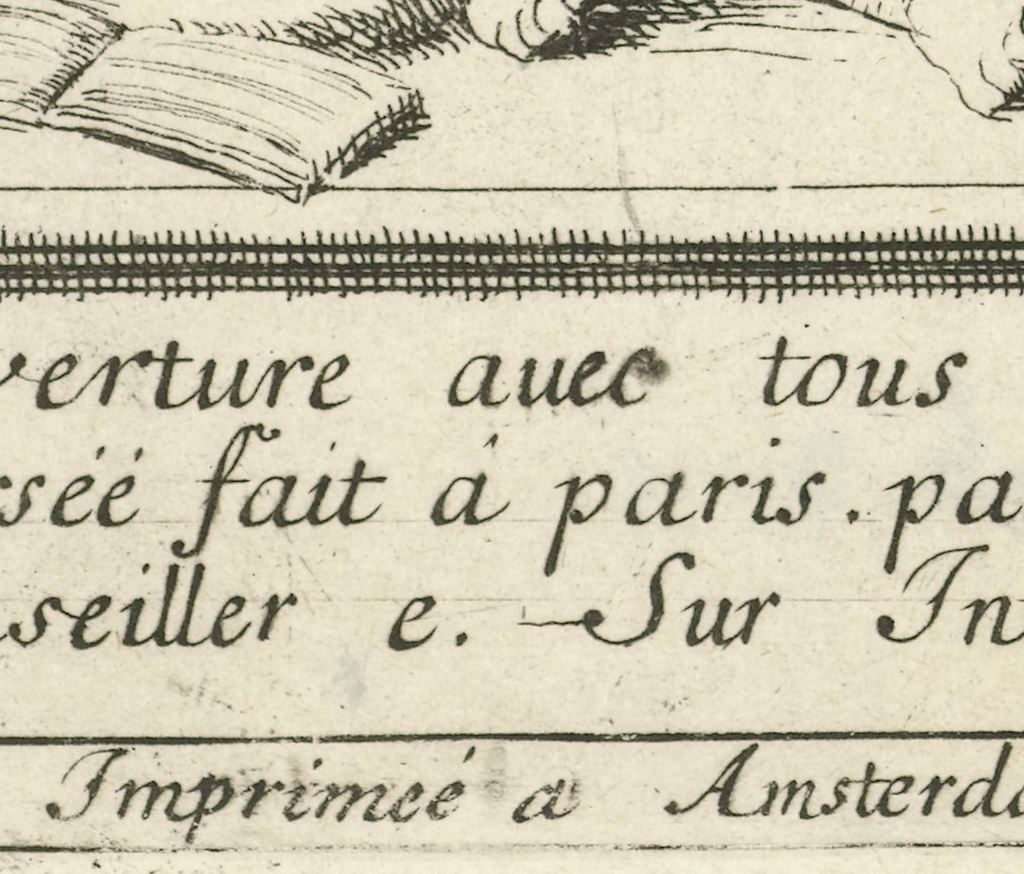 verture auec tous
séé fait â paris. pa
seiller e. Sur In
Imprimeé a Amsterda